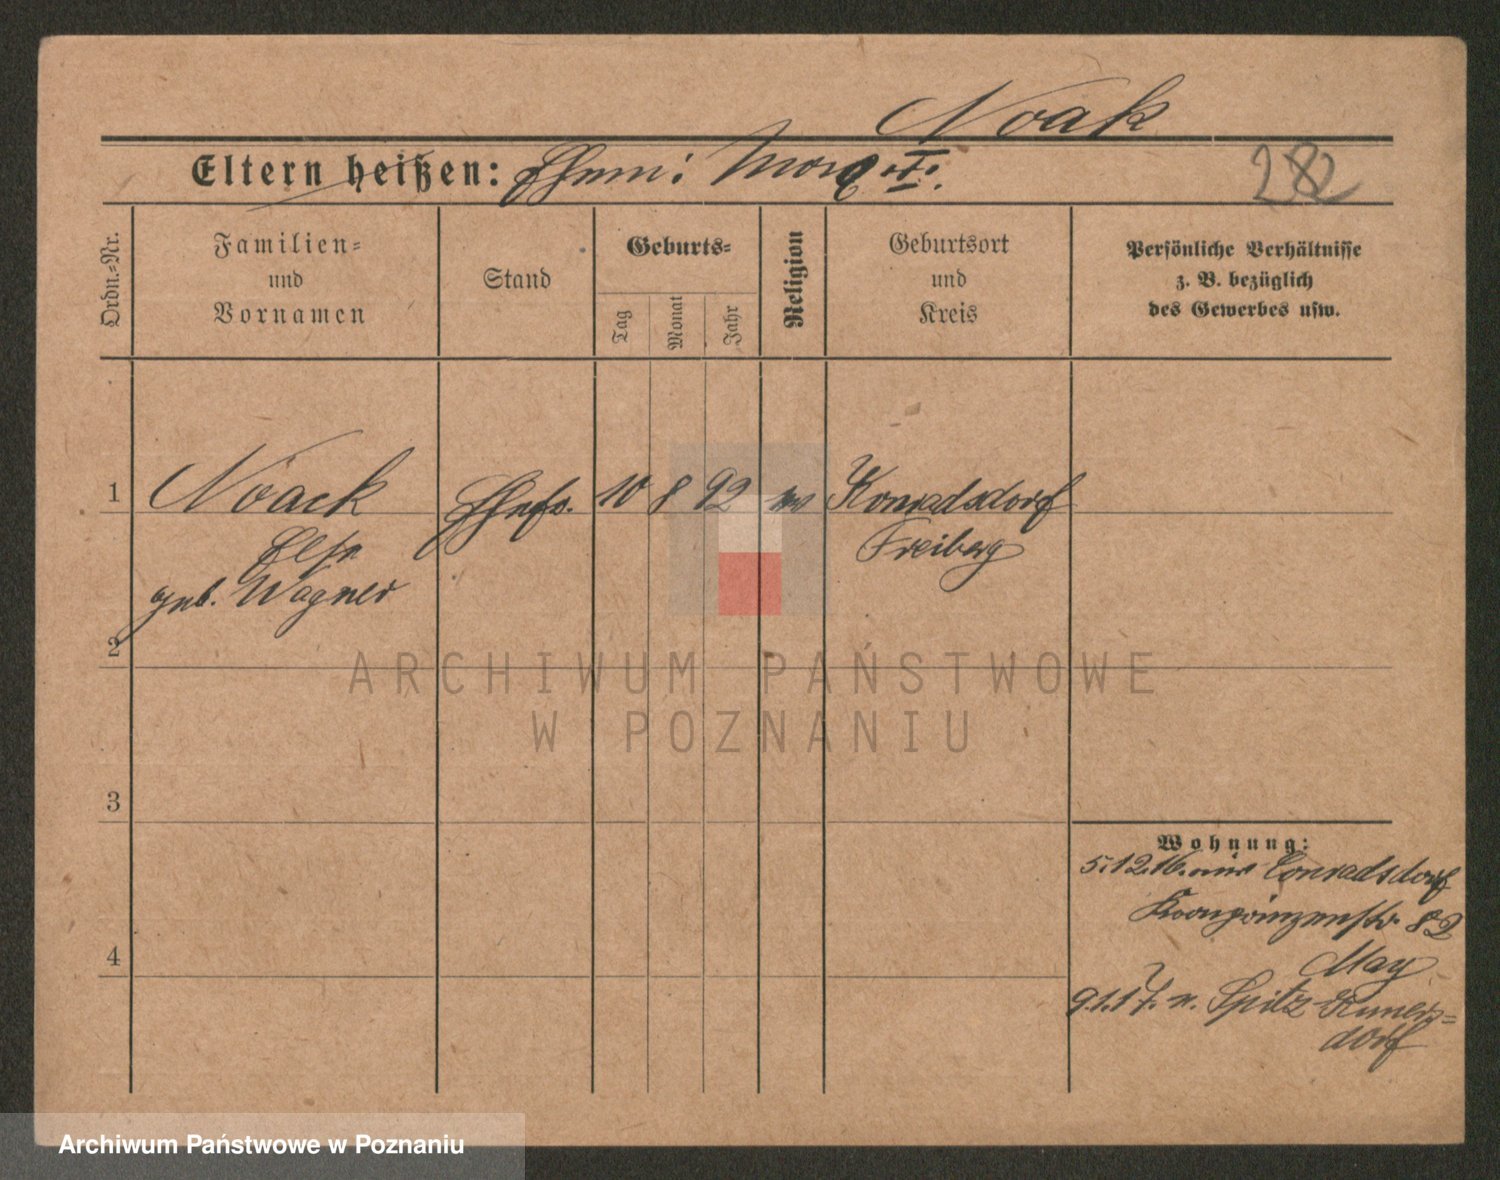 Noak
Eltern heißen: Ehem: Max I.
282
Ordn.-Nr.
Familien-
und
Vornamen
Stand
Geburts-
Tag
Monat
Jahr
Religion
Geburtsort
und
Kreis
Persönliche Verhältnisse
z. B. bezüglich
des Gewerbes usw.
1 Noack Ehefr. 10 8 92 ev Konradsdorf
Else Freiberg
geb. Wagner
2
ARCHIWUM PAŃSTWOWE
W POZNANIU
3
Wohnung:
5.12.16. aus Conradsdorf
Kronprinzenstr. 82
May
4
9.1.17. n. Spitz-
dorf
Archiwum Państwowe w Poznaniu